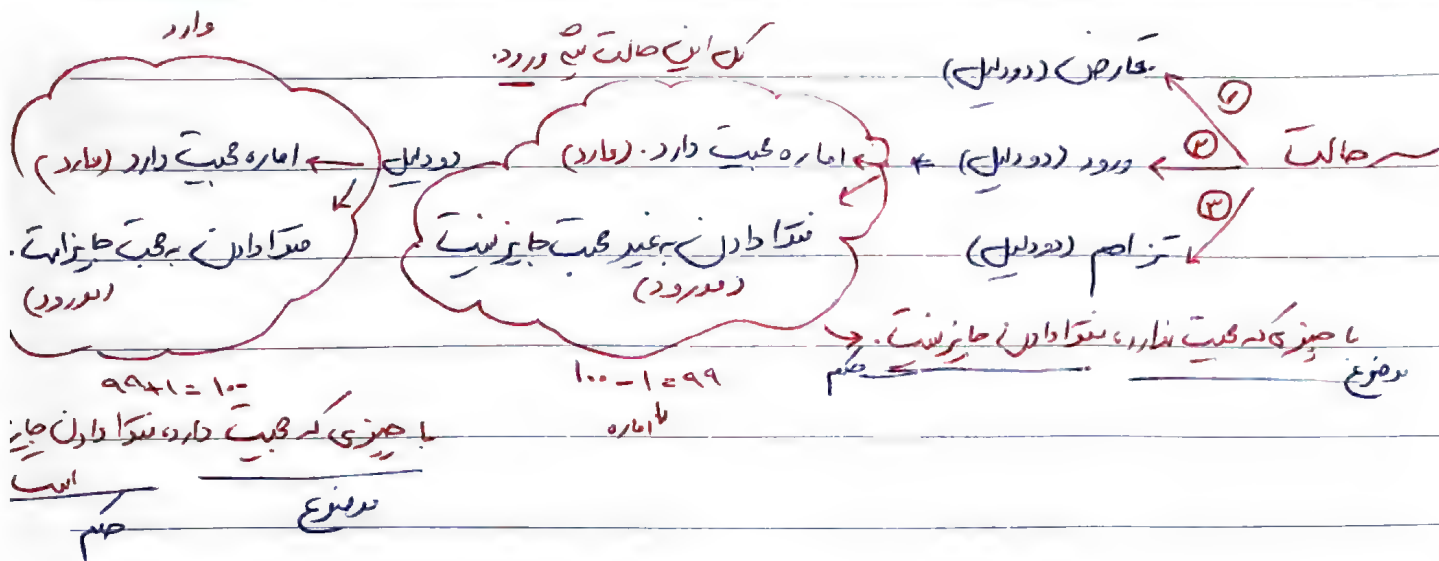 سه حالت
① تعارض (دو دلیل)
② ورود (دو دلیل)
③ تزاحم (دو دلیل)
کل این حالت میشه ورود.
اماره حجیت دارد. (وارد)
فتوا دادن به غیر حجت جایز نیست
(مورود)
۱۰۰ - ۱ = ۹۹
اماره
با چیزی که حجیت ندارد، فتوا دادن جایز نیست.
موضوع
حکم
وارد
دو دلیل
اماره حجیت دارد (وارد)
فتوا دادن به حجت جایز است.
(مورود)
۹۹+۱ = ۱۰۰
با چیزی که حجیت دارد، فتوا دادن جایز
است
موضوع
حکم